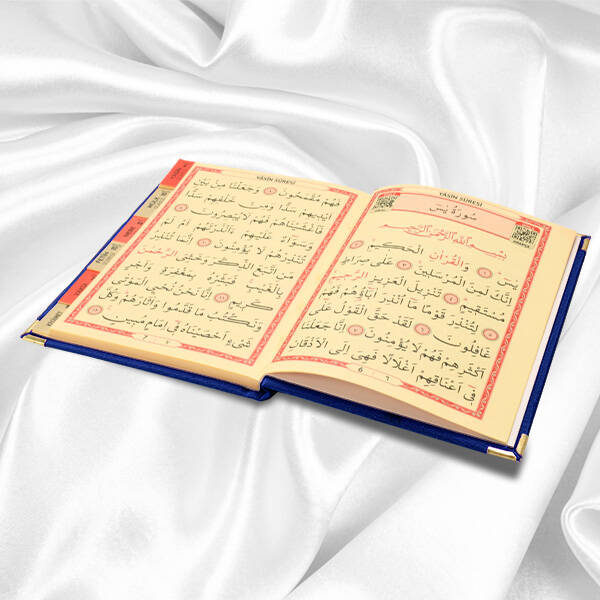 YÂSÎN SÛRESİ
سُورَةُ يٰسٓ
بِسْمِ اللّٰهِ الرَّحْمٰنِ الرَّحِيمِ
يٰسٓ ﴿١﴾ وَالْقُرْاٰنِ الْحَكِيمِ ﴿٢﴾
اِنَّكَ لَمِنَ الْمُرْسَلِينَ ﴿٣﴾ عَلٰى صِرَاطٍ
مُسْتَقِيمٍ ﴿٤﴾ تَنْزِيلَ الْعَزِيزِ الرَّحِيمِ ﴿٥﴾
لِتُنْذِرَ قَوْمًا مَٓا اُنْذِرَ اٰبَٓاؤُ۬هُمْ فَهُمْ
غَافِلُونَ ﴿٦﴾ لَقَدْ حَقَّ الْقَوْلُ عَلٰٓى
اَكْثَرِهِمْ فَهُمْ لَا يُؤْمِنُونَ ﴿٧﴾ اِنَّا جَعَلْنَا
فِٓي اَعْنَاقِهِمْ اَغْلَالًا فَهِيَ اِلَى الْاَذْقَانِ
6 ٦
YÂSÎN SÛRESİ
فَهُمْ مُقْمَحُونَ ﴿٨﴾ وَجَعَلْنَا مِنْ بَيْنِ
اَيْدِيهِمْ سَدًّا وَمِنْ خَلْفِهِمْ سَدًّا
فَاَغْشَيْنَاهُمْ فَهُمْ لَا يُبْصِرُونَ ﴿٩﴾
وَسَوَٓاءٌ عَلَيْهِمْ ءَاَنْذَرْتَهُمْ اَمْ لَمْ
تُنْذِرْهُمْ لَا يُؤْمِنُونَ ﴿١٠﴾ اِنَّمَا تُنْذِرُ
مَنِ اتَّبَعَ الذِّكْرَ وَخَشِيَ الرَّحْمٰنَ
بِالْغَيْبِ فَبَشِّرْهُ بِمَغْفِرَةٍ وَاَجْرٍ
كَرِيمٍ ﴿١١﴾ اِنَّا نَحْنُ نُحْيِ الْمَوْتٰى
وَنَكْتُبُ مَا قَدَّمُوا وَاٰثَارَهُمْ وَكُلَّ
شَيْءٍ اَحْصَيْنَاهُ فِٓي اِمَامٍ مُبِينٍ ﴿١٢﴾
7 ٧